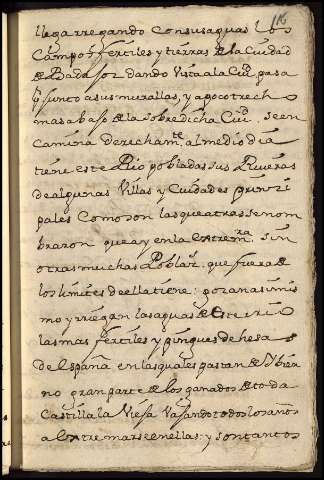 16
llega rregando con sus aguas los
Campos fertiles y tierras de la Ciudad
de Badajoz dando vista a la Ciud. pasa
junto a sus murallas, y a poco trecho
mas abajo de la sobre dicha Ciud. se en
camina derecham.te al medio dia
tiene este Rio pobladas sus Riveras
de algunas Villas y Ciudades prinzi
pales Como son las que atras se nom
braron que ay en la extrem.ra. sin
otras muchas Poblaz. que fuera de
los limites de ella tiene, gozan asimis
mo y rriegan las aguas de este rio
las mas fertiles y pingues dehesas
de España en las quales pastan de Ybier
no gran parte de los ganados de toda
Castilla la Vieja vajando todos los años
a extremarse en ellas, y son tantos